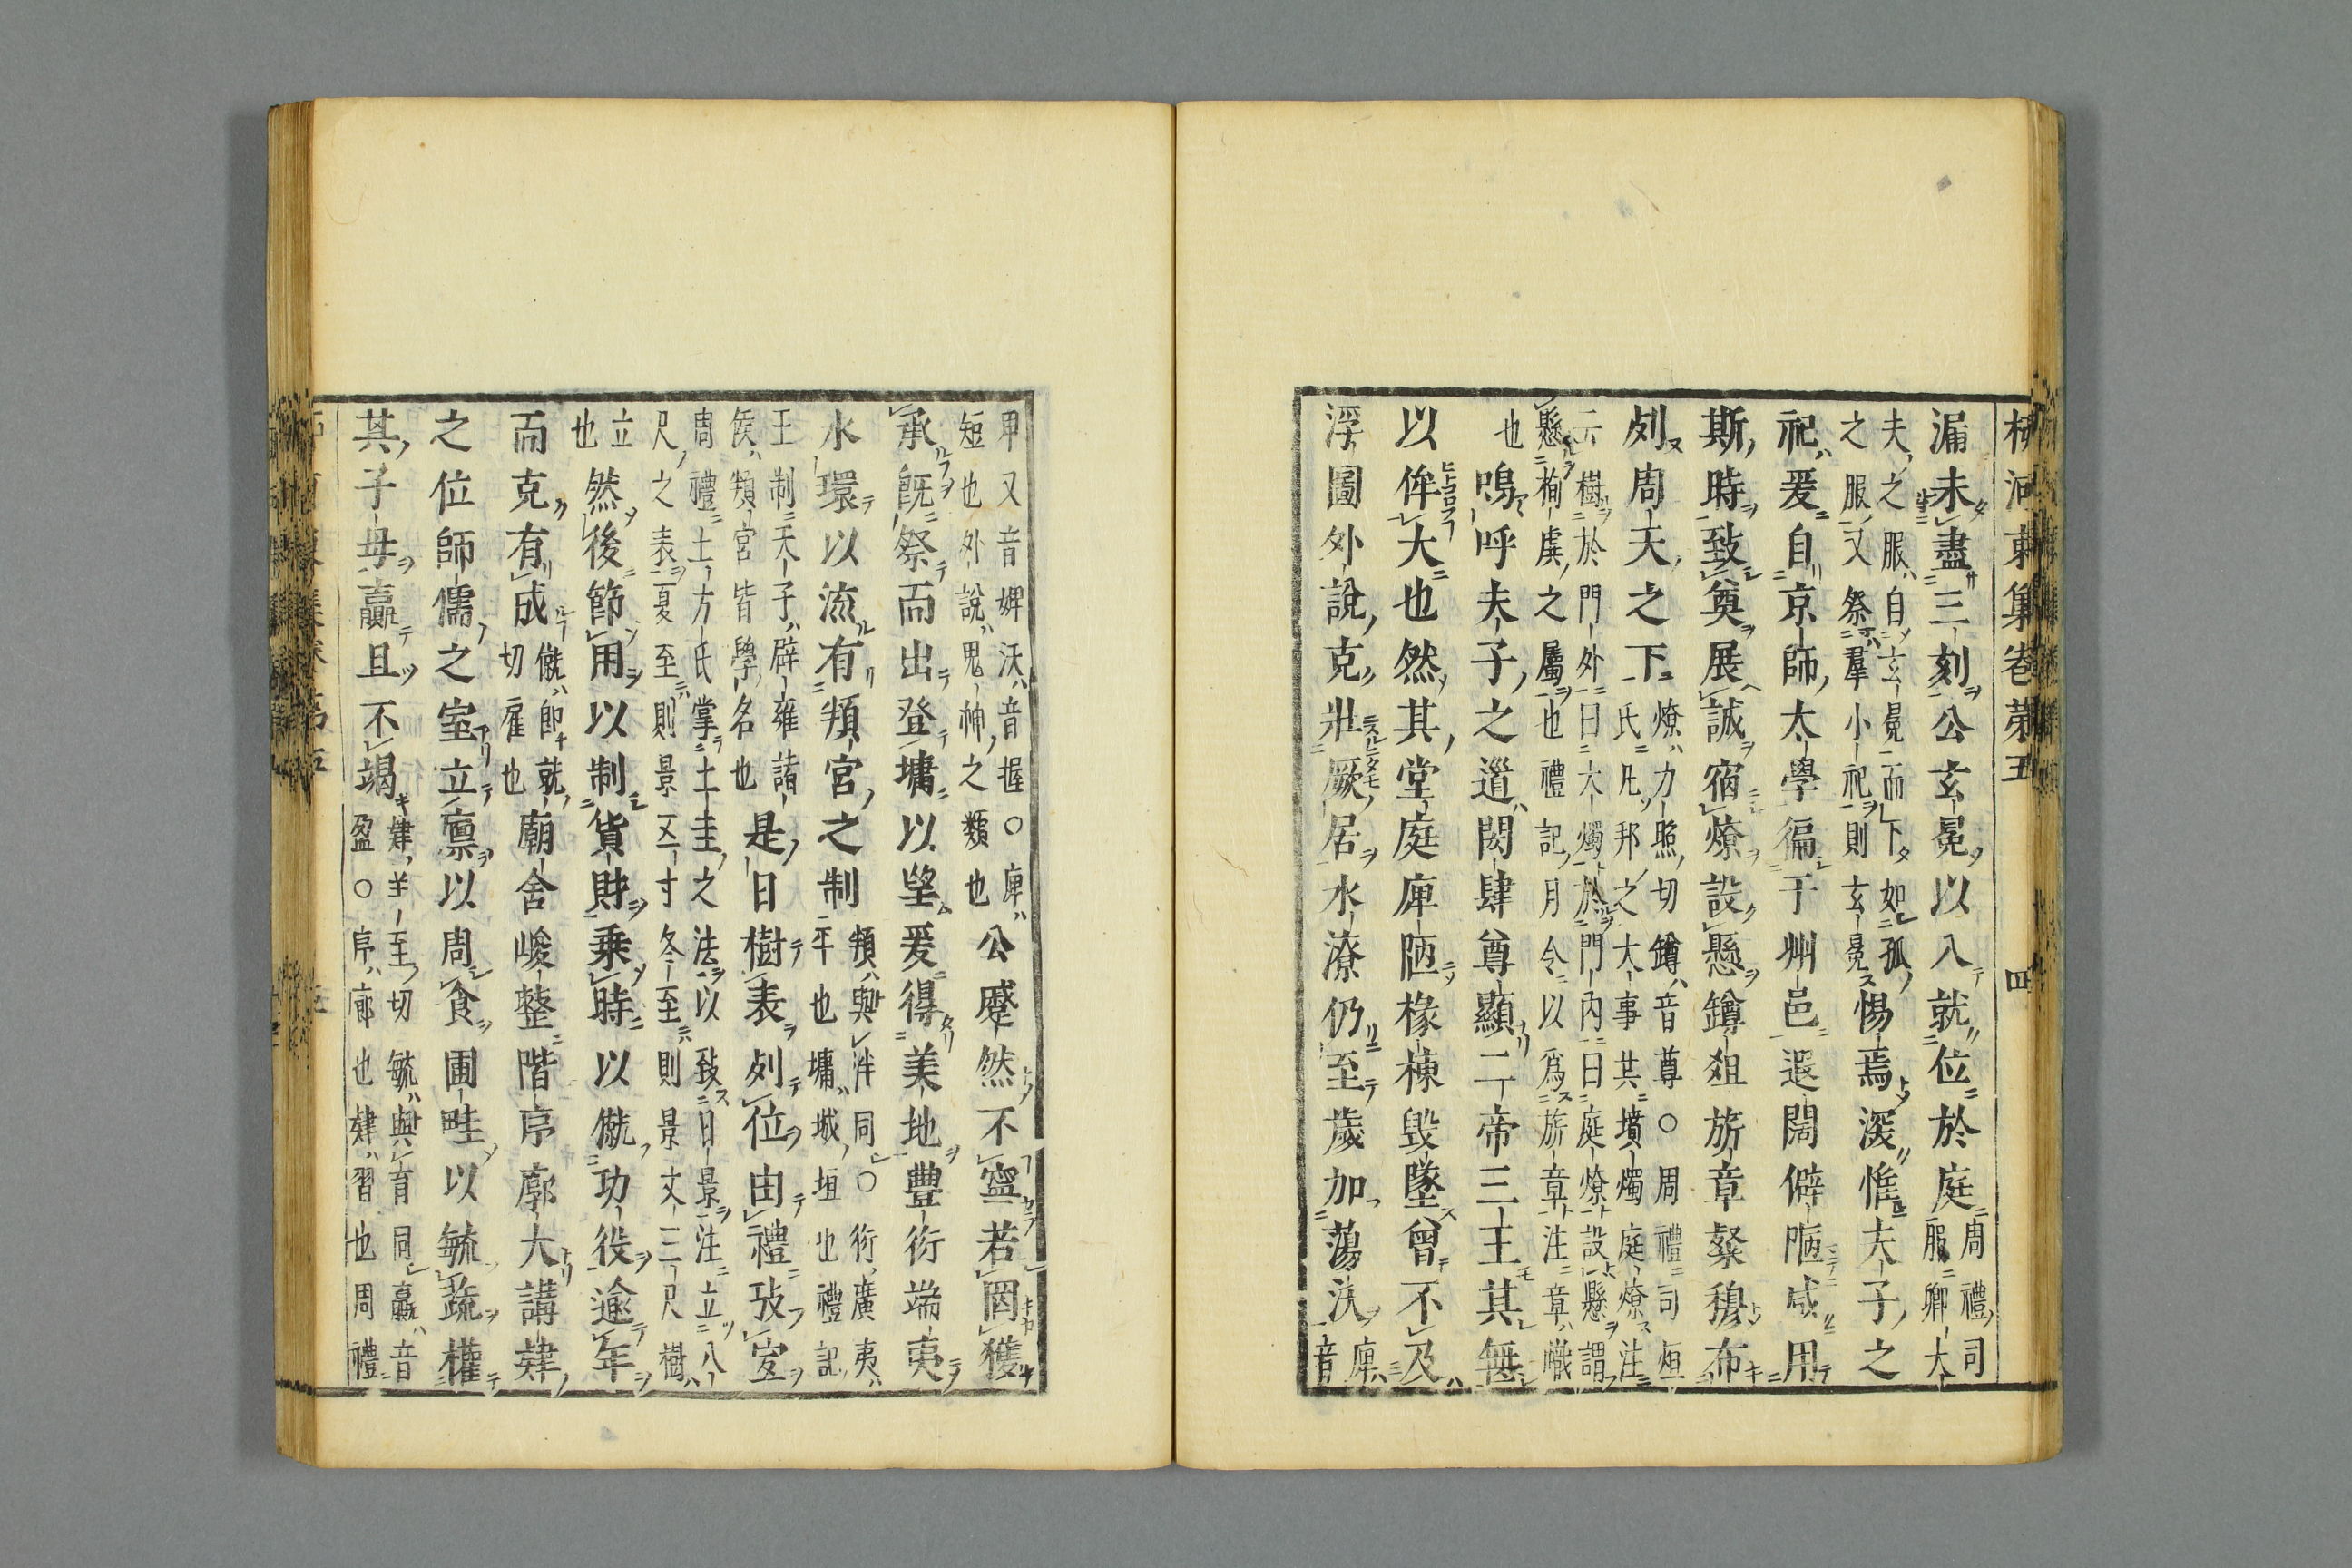 柳河東集卷第五 四
漏未盡三刻公玄冕以入就位於庭周禮司服卿大
夫之服自玄冕而下如孤之服又祭群小祀則玄冕惕焉深惟夫子之
祀爰自京師太學徧于州邑遐闊僻陋咸用
斯時致奠展誠宿燎設懸罇俎旂章粲穆布
列周天之下燎力照切罇音尊○周禮司烜氏凡邦之大事共墳燭庭燎注
云樹於門外曰大燭於門内曰庭燎設懸謂懸栒虡之屬也禮記月令以爲旂章注章幟
也嗚呼夫子之道閎肆尊顯二帝三王其無
以侔大也然其堂庭庳陋椽棟毀墜曾不及
浮圖外說克壯厥居水潦仍至歲加蕩沃庳音
卑又音婢沃音握○庳短也外說鬼神之類也公蹙然不寧若罔獲
承旣祭而出登墉以望爰得美地豐衍端夷
水環以流有頖宮之制頖與泮同○衍廣夷平也墉城垣也禮記
王制天子辟雍諸侯頖宮皆學名也是日樹表列位由禮攷宜
周禮土方氏掌土圭之法以致日景注立八尺之表夏至則景五寸冬至則景丈三尺樹
立也然後節用以制貨財乘時以僦功役逾年
而克有成僦即就切雇也廟舍峻整階序廓大講肄
之位師儒之室立廩以周食圃畦以毓蔬權
其子母贏且不竭肄羊至切毓與育同贏音盈○序廊也肄習也周禮